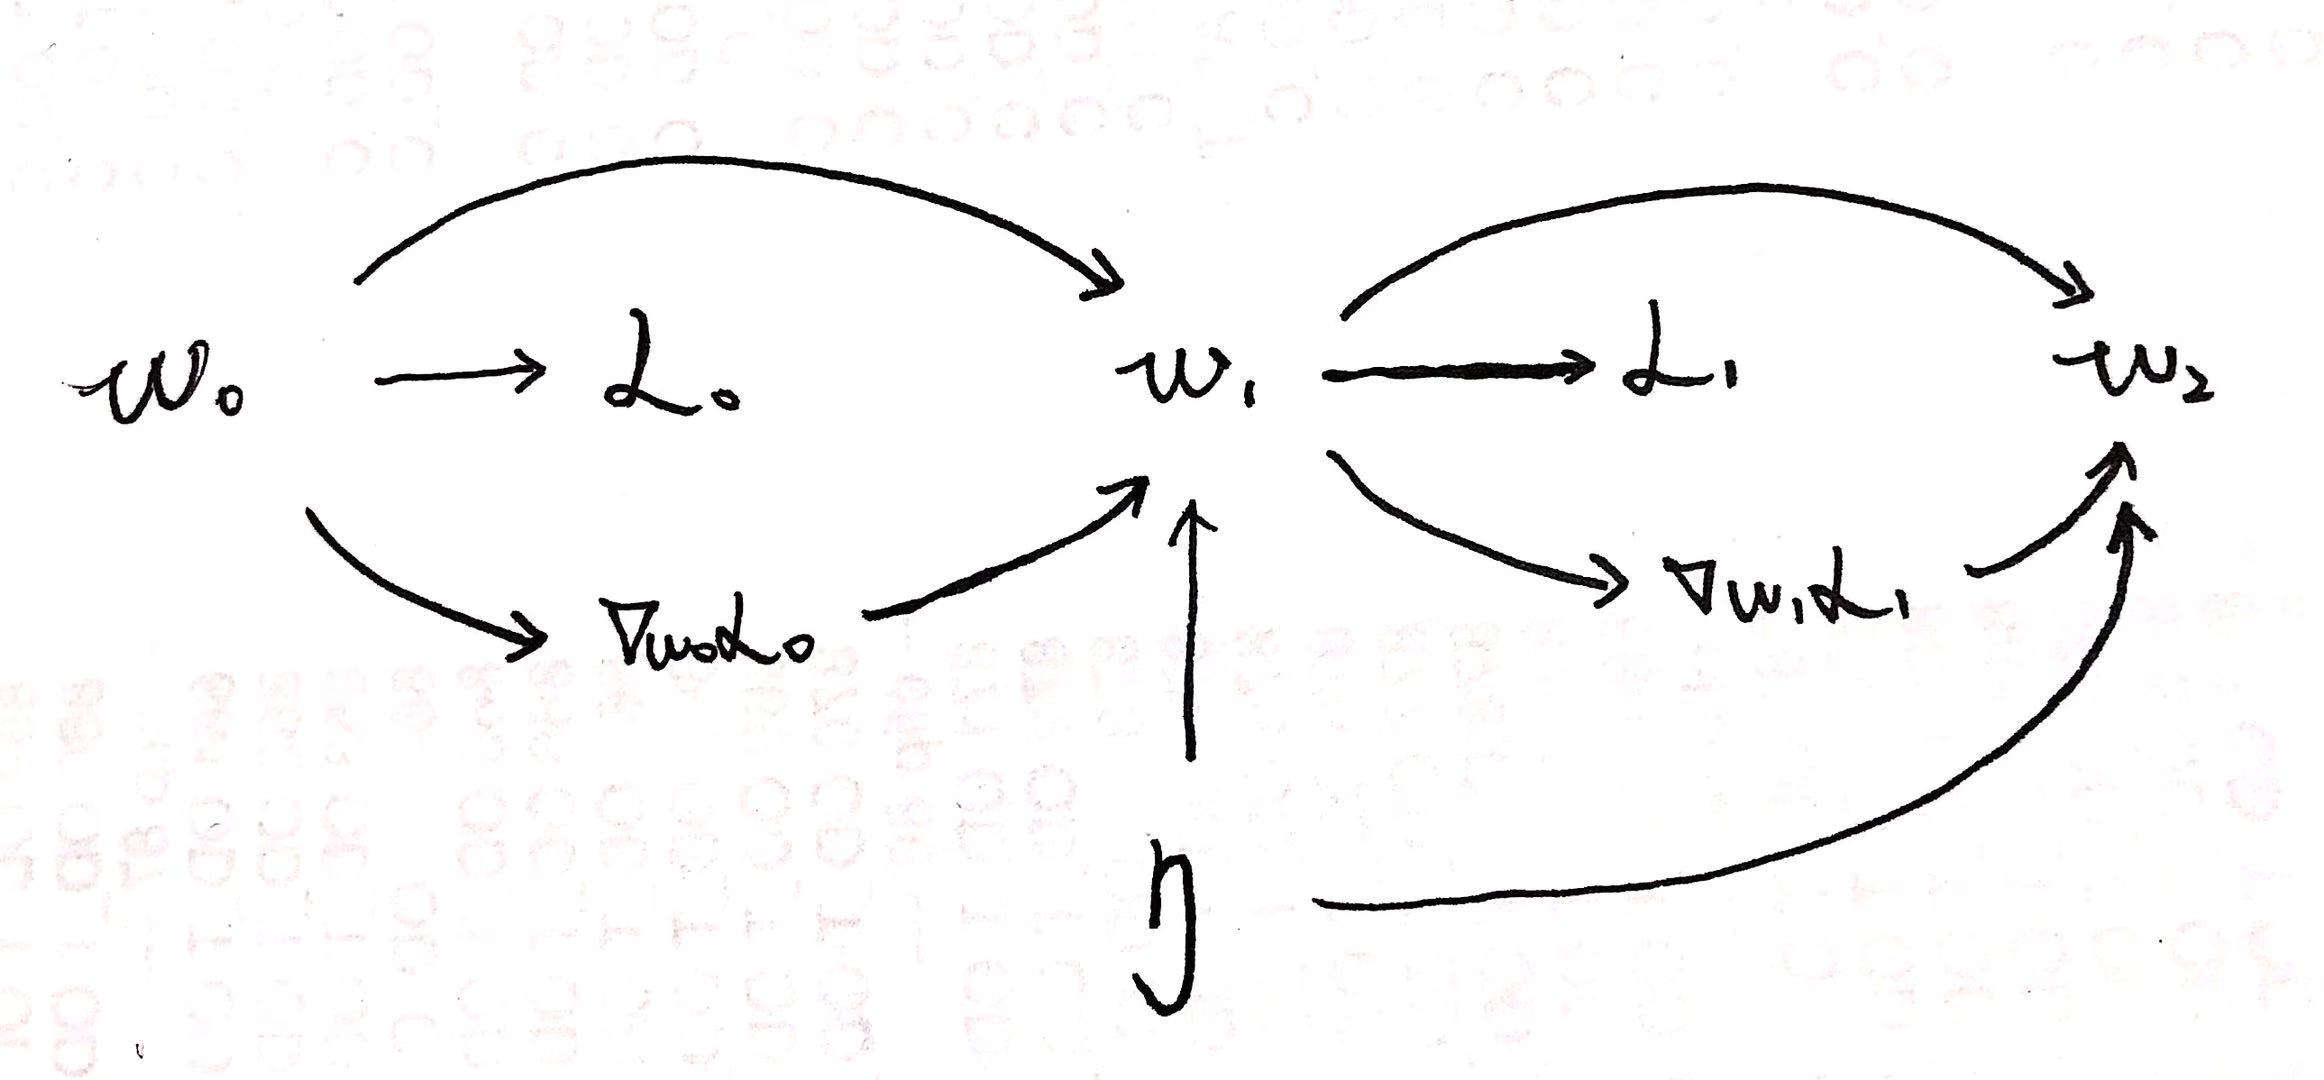 w₀ → ℒ₀ w₁ → ℒ₁ w₂
∇w₀ℒ₀ ∇w₁ℒ₁
η